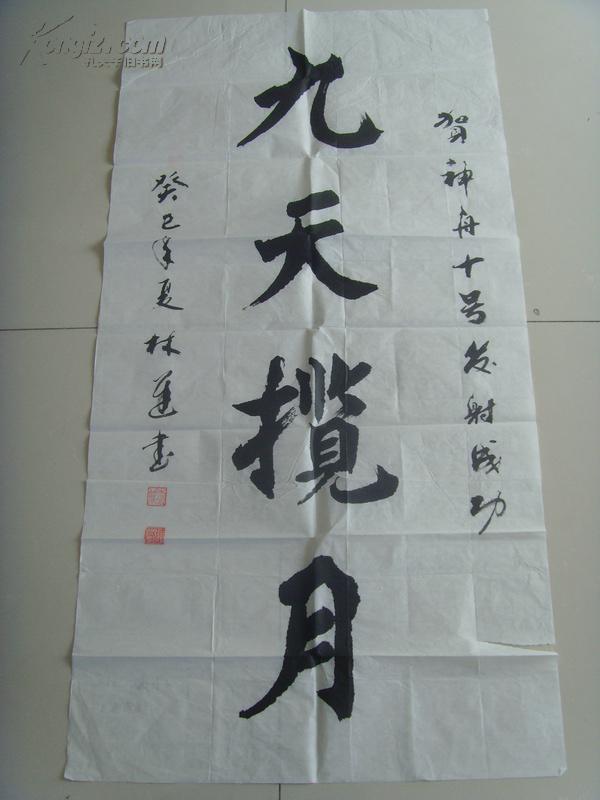 贺神舟十号发射成功
九天揽月
癸巳年夏林莲书
Kongfz.com
孔夫子旧书网